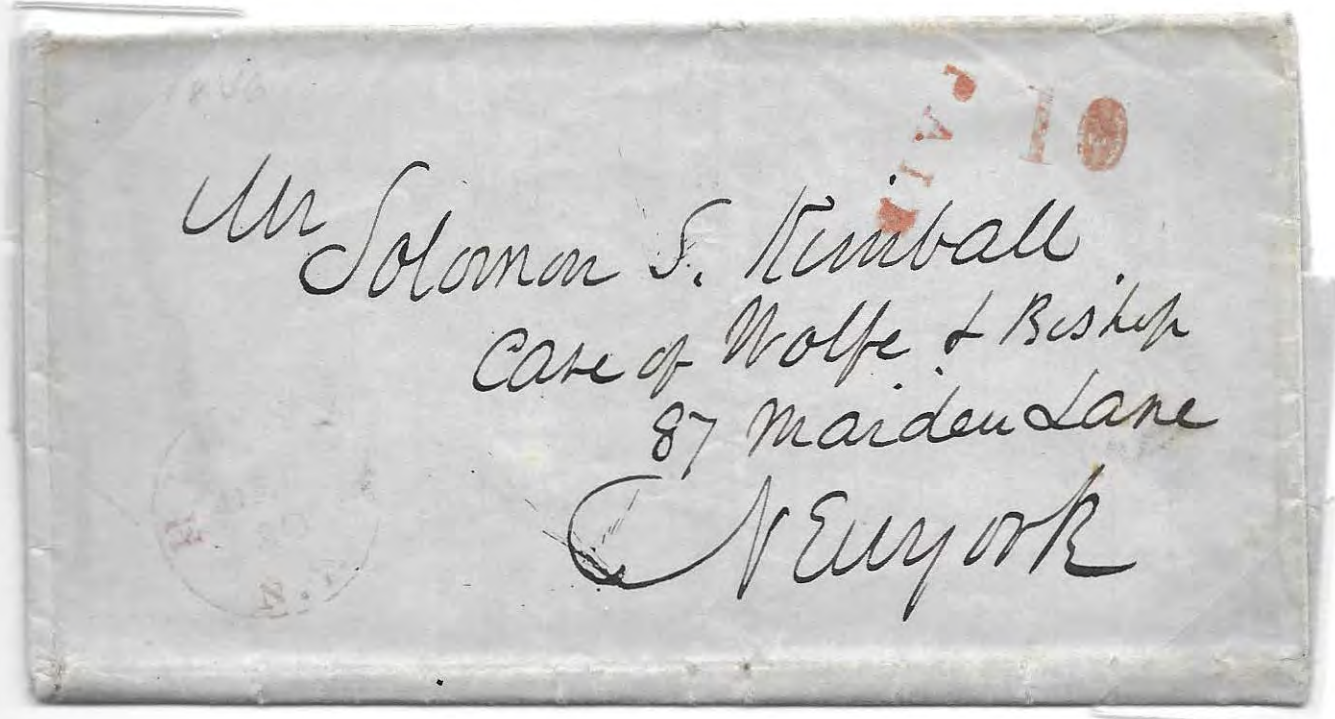 PAID
10
Mr
Solomon S. Kimball
Care of Wolfe & Bishop
87 Maiden Lane
NEwyork
20
N.